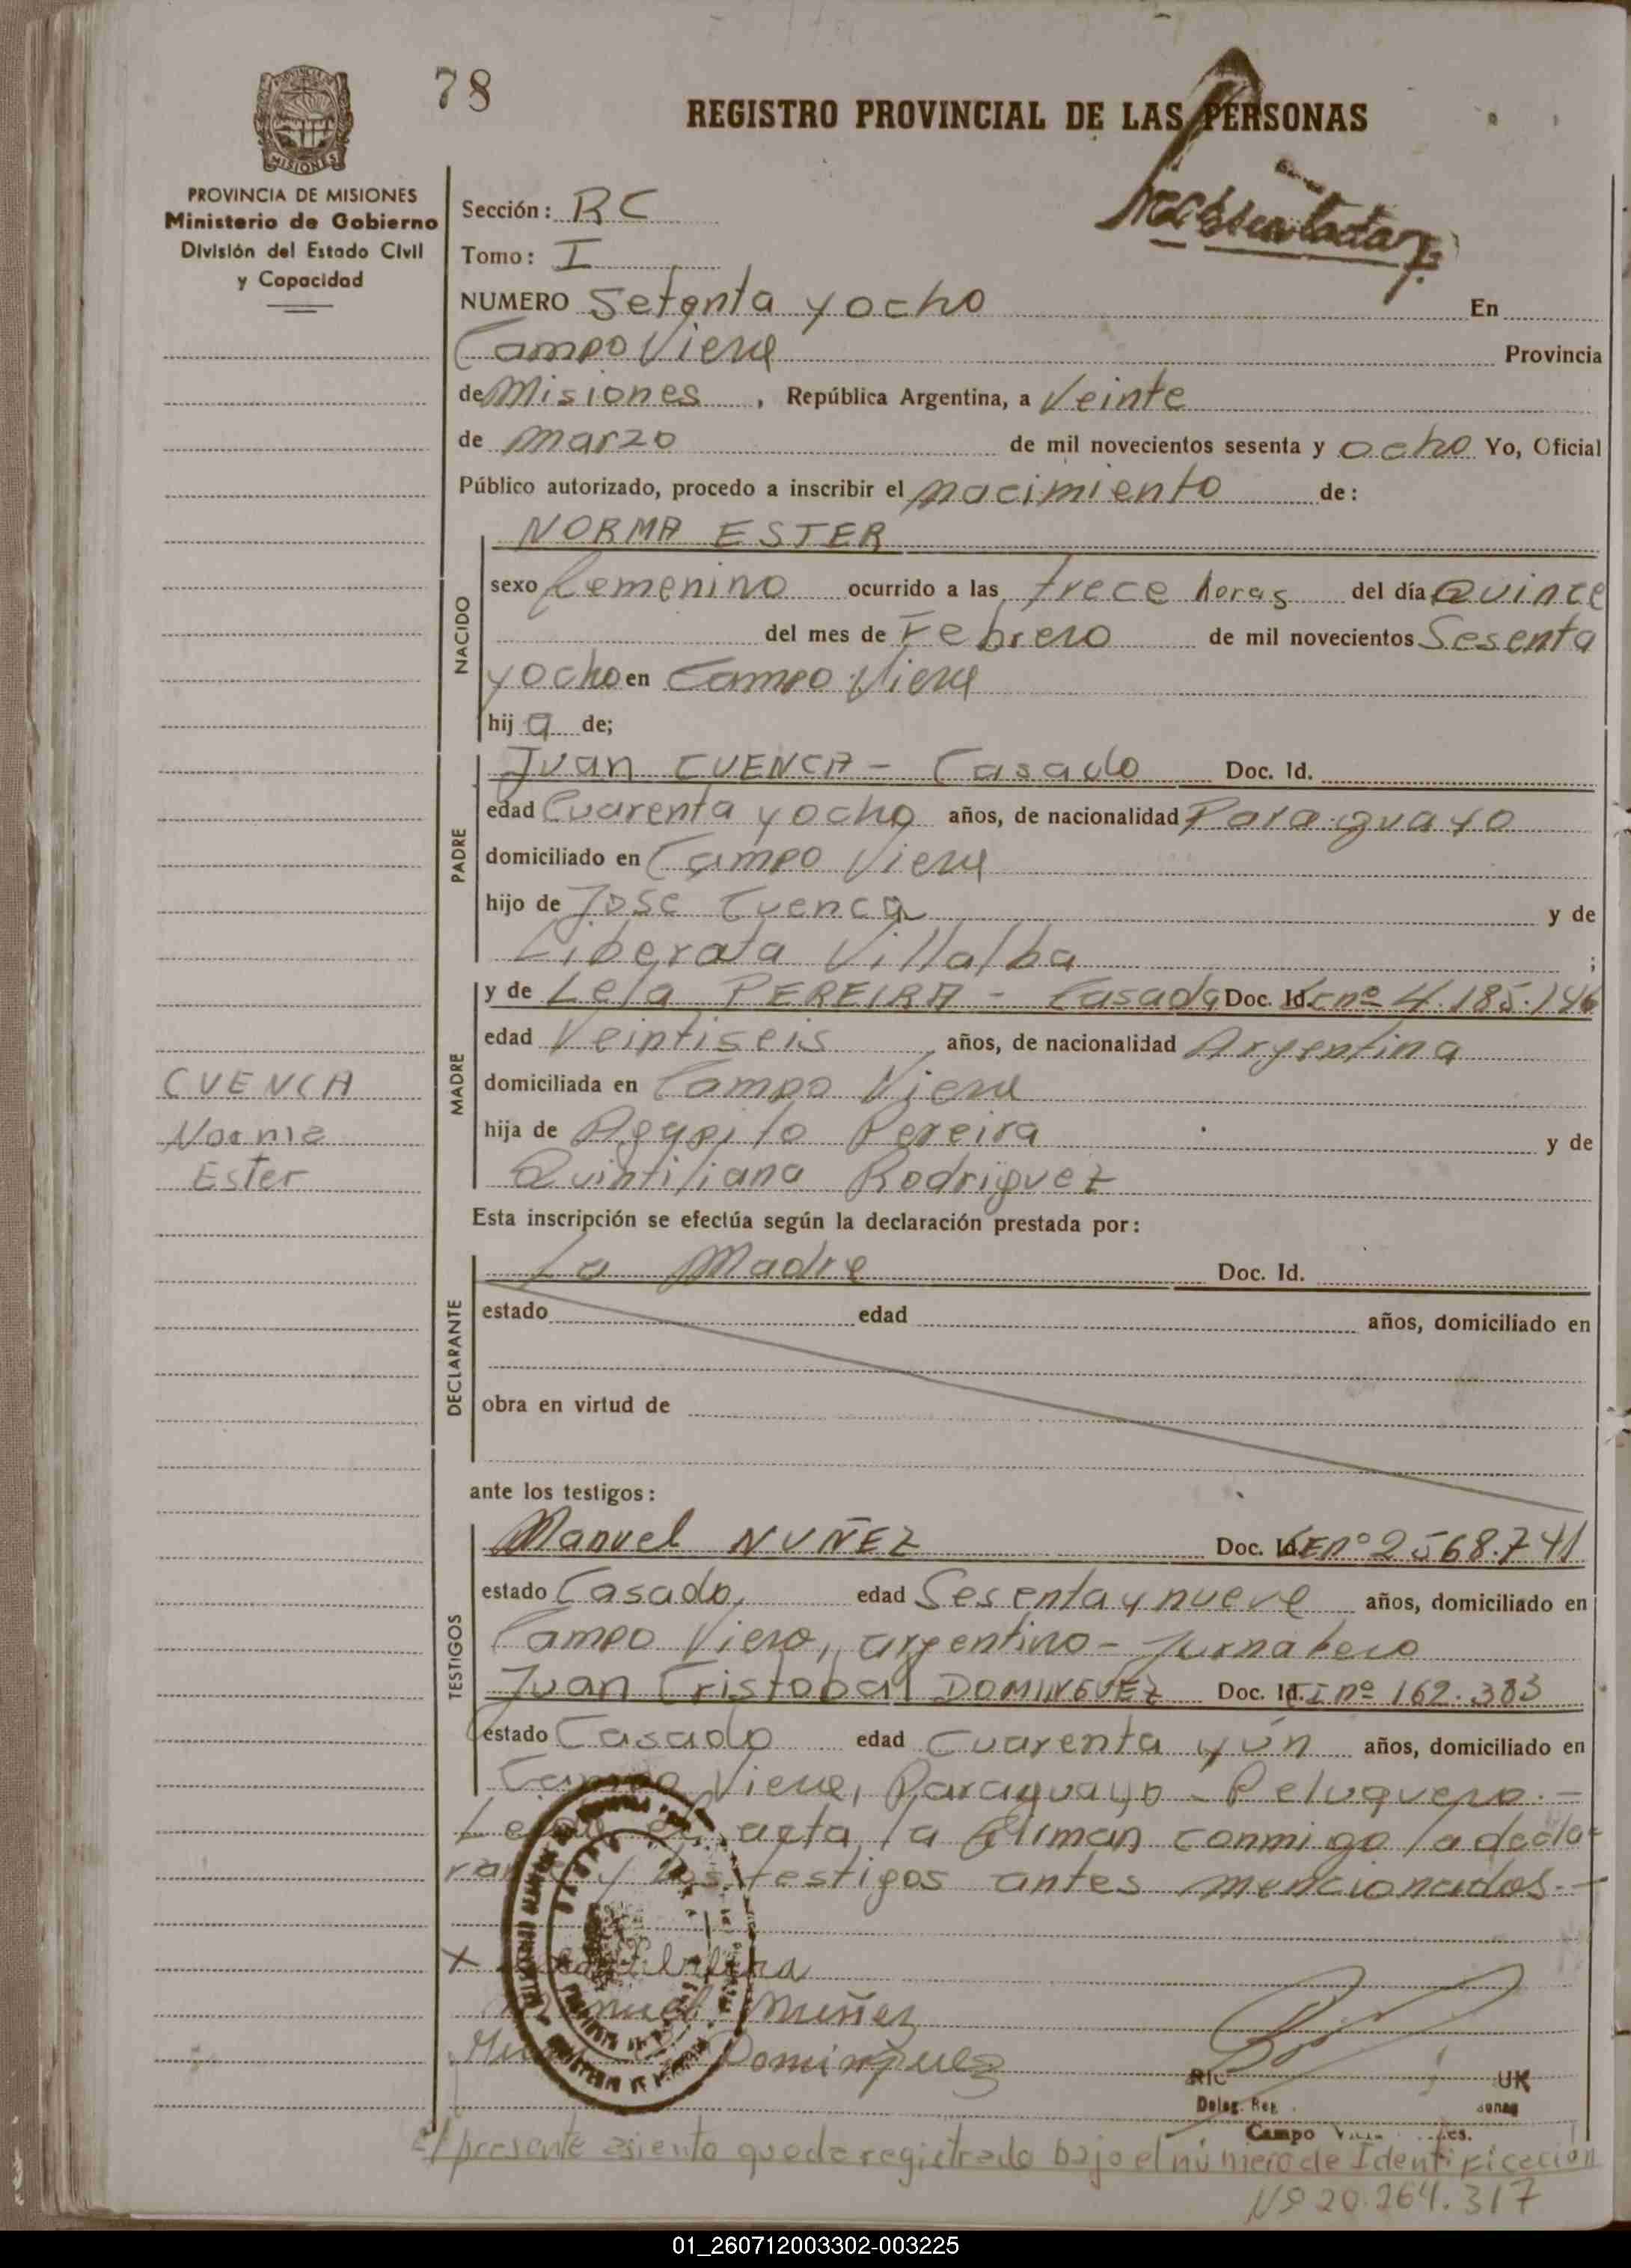 78
REGISTRO PROVINCIAL DE LAS PERSONAS
MISIONES
PROVINCIA DE MISIONES
Ministerio de Gobierno
División del Estado Civil
y Capacidad
Sección: RC
Tomo: I
NUMERO Setenta y ocho En
Campo Viera Provincia
de Misiones, República Argentina, a Veinte
de marzo de mil novecientos sesenta y ocho Yo, Oficial
Público autorizado, procedo a inscribir el nacimiento de:
NORMA ESTER
NACIDO
sexo femenino ocurrido a las trece horas del día Quince
del mes de Febrero de mil novecientos Sesenta
y ocho en Campo Viera
hij a de;
PADRE
Juan CUENCA - Casado Doc. Id.
edad Cuarenta y ocho años, de nacionalidad Paraguayo
domiciliado en Campo Viera
hijo de José Cuenca y de
Liberata Villalba ;
MADRE
y de Lela PEREIRA - Casada Doc. Id. LC nº 4.185.146
edad Veintiseis años, de nacionalidad Argentina
domiciliada en Campo Viera
hija de Agapito Pereira y de
Quintiliana Rodriguez
CUENCA
Norma
Ester
Esta inscripción se efectúa según la declaración prestada por:
DECLARANTE
La Madre Doc. Id.
estado edad años, domiciliado en
obra en virtud de
ante los testigos:
TESTIGOS
Manuel NUÑEZ Doc. Id. LE nº 2568.741
estado Casado, edad Sesenta y nueve años, domiciliado en
Campo Viera, argentino - Jornalero
Juan Cristobal DOMINGUEZ Doc. Id. CI nº 162.383
estado Casado edad Cuarenta y ún años, domiciliado en
Campo Viera, Paraguayo - Peluquero.-
acta la firman conmigo la decla-
y los testigos antes mencionados.-
X
Muñez
Dominguez
Deleg. Reg.
Campo
El presente asiento queda registrado bajo el número de Identificación
Nº 20.264.317
01_260712003302-003225